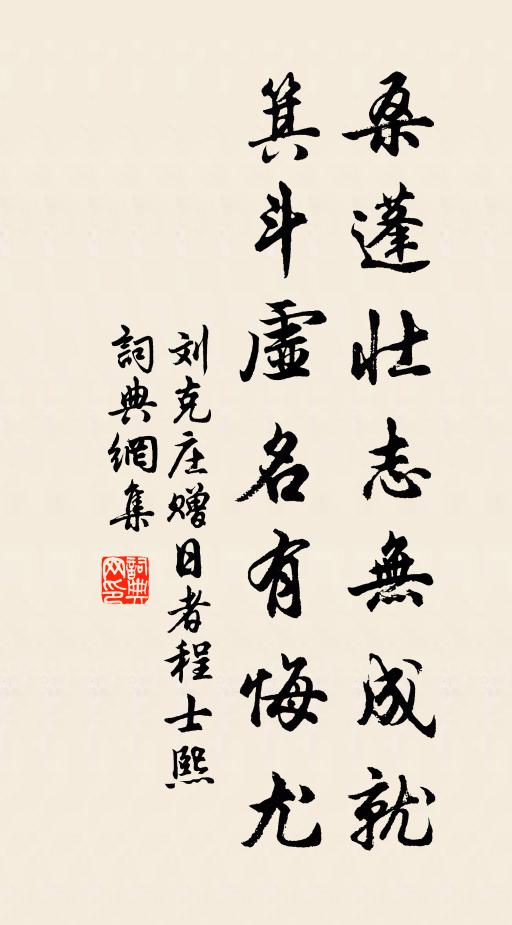 桑蓬壮志無成就
箕斗虛名有悔尤
刘克庄赠日者程士熙
詞典網集
詞典网印